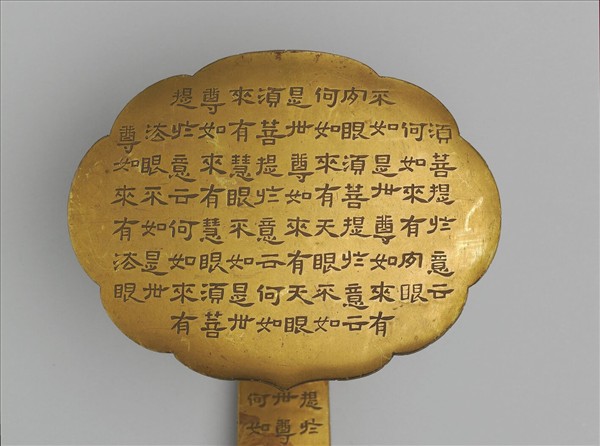 須菩提於意云
何如來有肉眼
不如是世尊如來有
肉眼須菩提於意云
何如來有天眼不如
是世尊如來有天眼
須菩提於意云何如
來有慧眼不如是世
尊如來有慧眼須菩
提於意云何如來有
法眼不如是世
尊如來有法眼
提於
世尊
何如